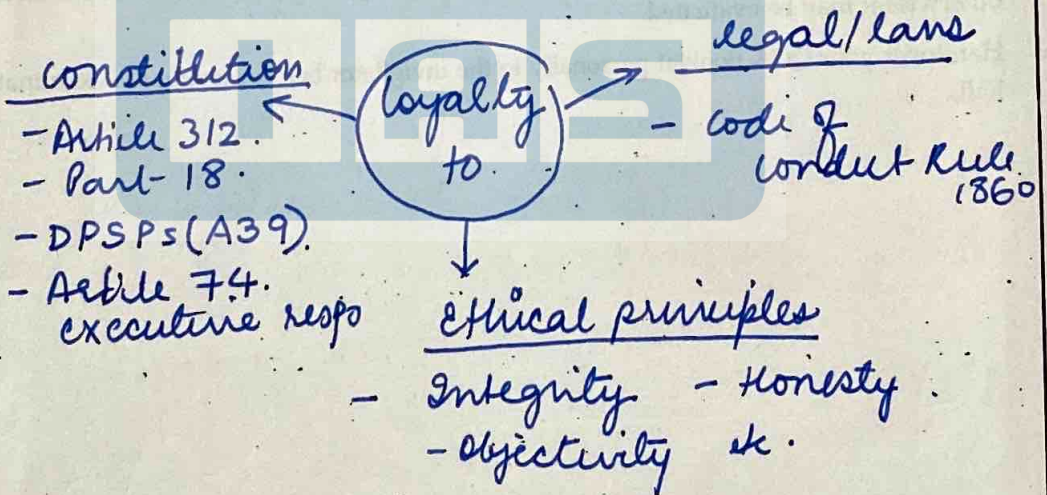 loyalty
to.
constitution
- Article 312.
- Part-18.
- DPSPs (A39).
- Article 74.
executive respo
legal/laws
- code of
conduct Rule
1860
Ethical principles
- Integrity - Honesty.
- Objectivity etc.
IAS